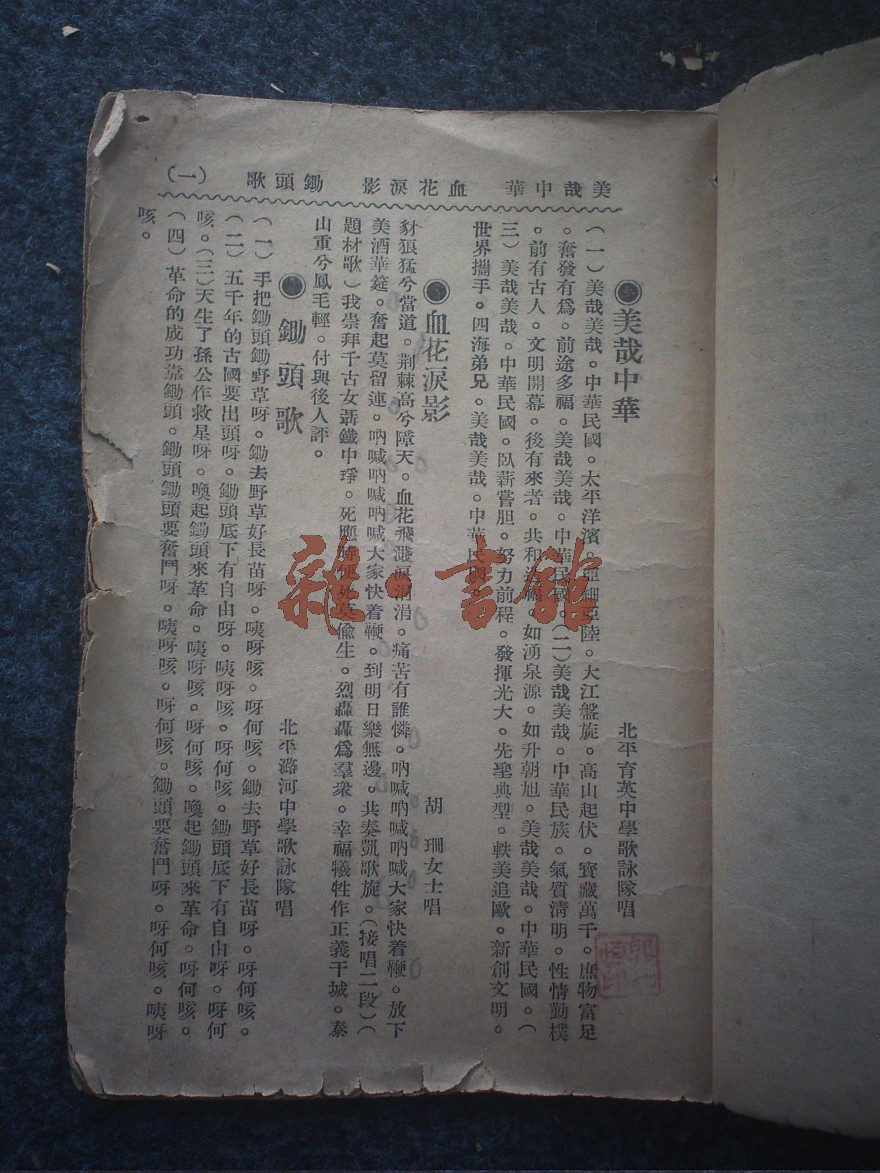 美哉中華　血花淚影　鋤頭歌　（一）
◉美哉中華
北平育英中學歌詠隊唱
（一）美哉美哉。中華民國。太平洋濱。亞細亞陸。大江盤旋。高山起伏。寶藏萬千。庶物富足
。奮發有爲。前途多福。美哉美哉。中華民國。（二）美哉美哉。中華民族。氣質淸明。性情勤樸
。前有古人。文明開幕。後有來者。共和造福。如湧泉源。如升朝旭。美哉美哉。中華民國。（
三）美哉美哉。中華民國。臥薪嘗胆。努力前程。發揮光大。先聖典型。軼美追歐。新創文明。
世界攜手。四海弟兄。美哉美哉。中華民國。
◉血花淚影
胡　珊女士唱
豺狼猛兮當道。荆棘高兮障天。血花飛濺淚涓涓。痛苦有誰憐。吶喊吶喊吶喊大家快着鞭。放下
美酒華筵。奮起莫留連。吶喊吶喊吶喊大家快着鞭。到明日樂無邊。共奏凱歌旋。（接唱二段）（
題材歌）我崇拜千古女鐵中琤。死應時便死莫偸生。烈轟轟爲羣衆。幸福犧牲作正義干城。泰
山重兮鳳毛輕。付與後人評。
◉鋤頭歌
北平潞河中學歌詠隊唱
（一）手把鋤頭鋤野草呀。鋤去野草好長苗呀。咦呀咳。呀何咳。鋤去野草好長苗呀。呀何咳。
（二）五千年的古國要出頭呀。鋤頭底下有自由呀。咦呀咳。呀何咳。鋤頭底下有自由呀。呀何
咳。（三）天生了孫公作救星呀。喚起鋤頭來革命。咦呀咳。呀何咳。喚起鋤頭來革命。呀何咳。
（四）革命的成功靠鋤頭。鋤頭鋤頭要奮鬥呀。咦呀咳。呀何咳。鋤頭要奮鬥呀。呀何咳。咦呀
咳。
雜·書館